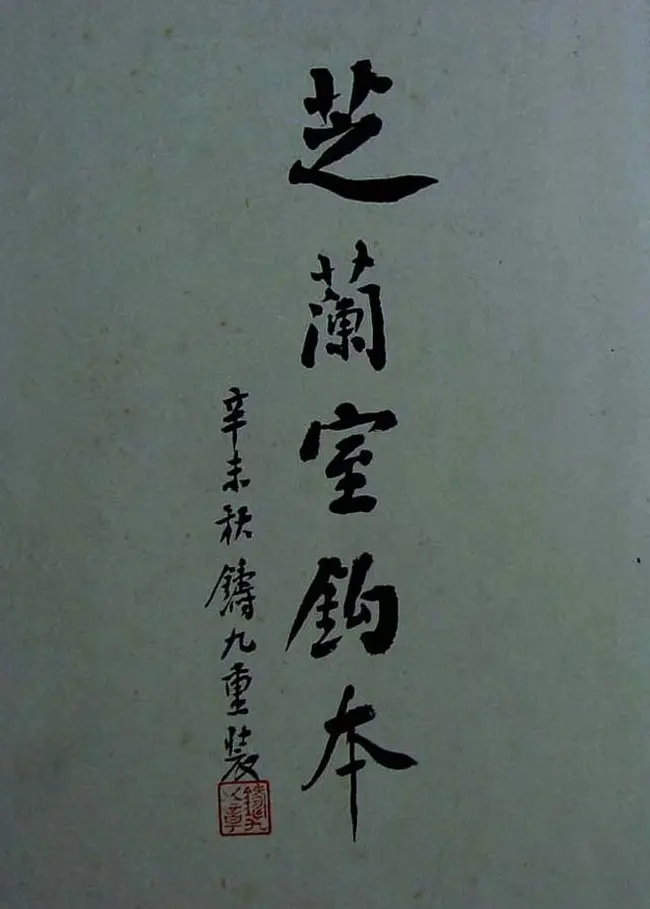 芝蘭室鈎本
辛未秋鑄九重裝